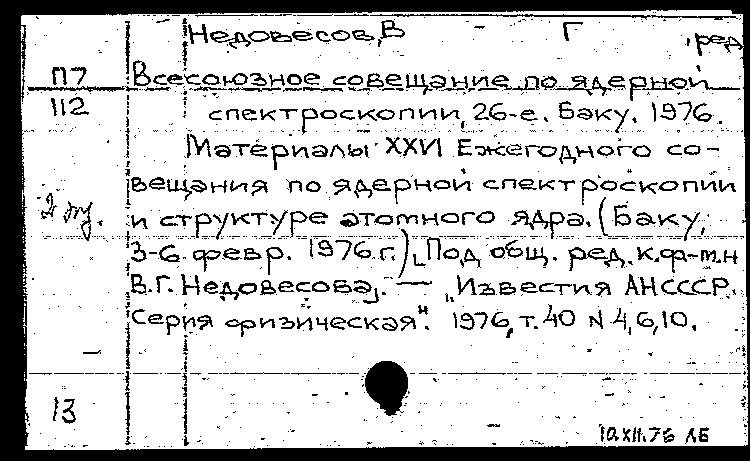 Недовесов, В Г , ред
П7 Всесоюзное совещание по ядерной
112 спектроскопии, 26-е. Баку. 1976.
Материалы XXVI Ежегодного со-
вещания по ядерной спектроскопии
и структуре атомного ядра. (Баку,
3-6 февр. 1976.г.) [Под общ. ред. к.ф-м.н
В.Г. Недовесова]. — „Известия АНСССР.
Серия физическая". 1976, т. 40 N 4,6,10.
13
10.XII.76 ЛБ